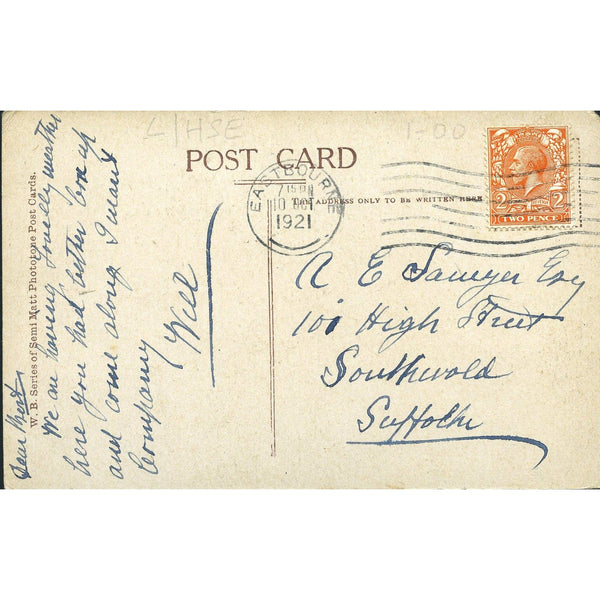 L/HSE
1-00
POST CARD
THE ADDRESS ONLY TO BE WRITTEN HERE
EASTBOURNE
7 15 PM
10 OCT
1921
2 2
TWO PENCE
W. B. Series of Semi Matt Photoone Post Cards.
Dear
We are having lovely weather
here you had better buck up
and come along I want
Company
Will
A E Sawyer Esq
101 High Street
Southwold
Suffolk